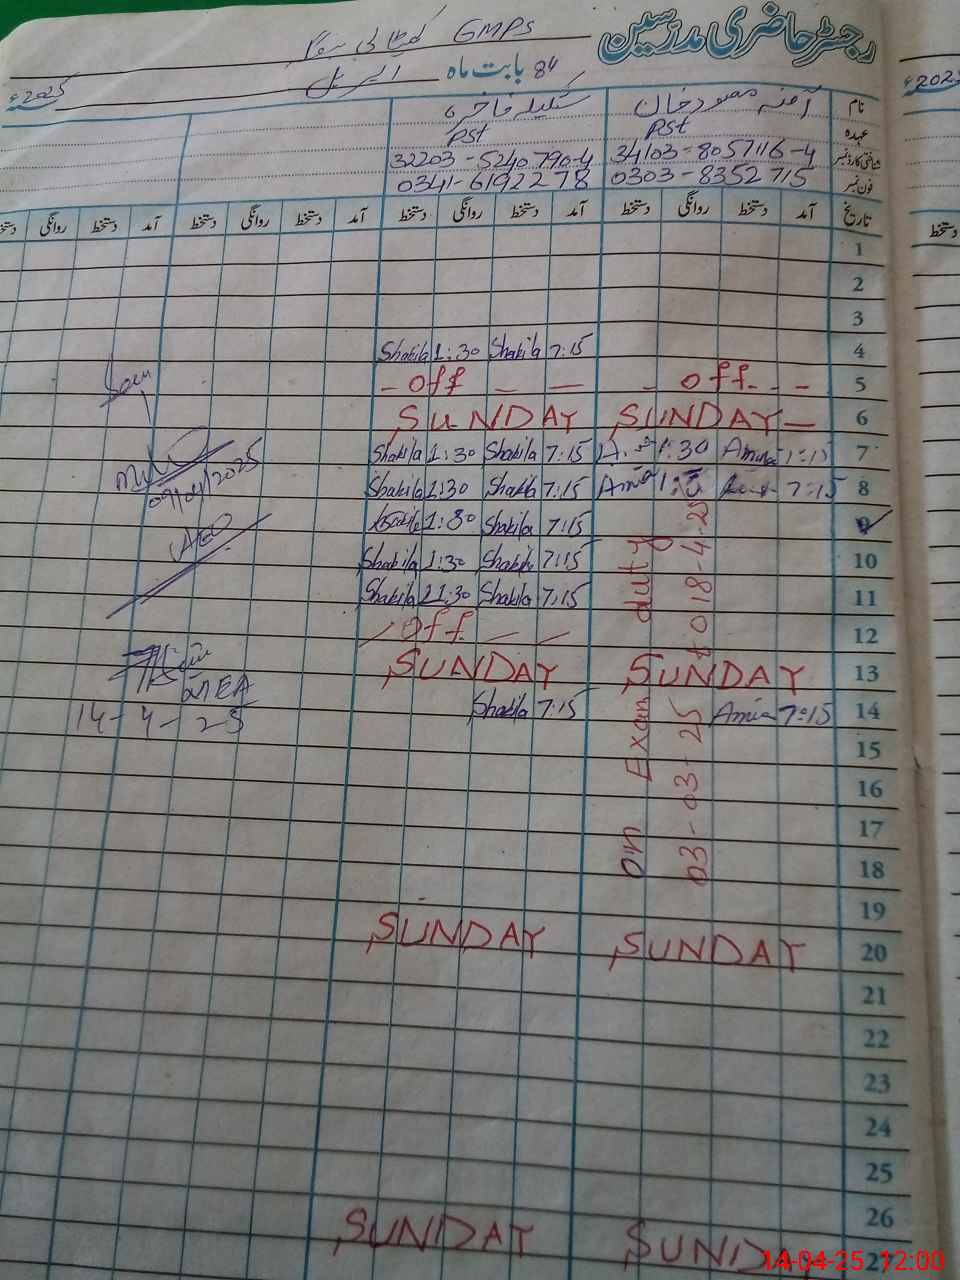 رجسٹر حاضری مدرسین
GMPS
بابت ماہ اپریل 2025ء
نام آمنہ مقصود خان شکیلہ فاخرہ
عہدہ PST PST
شناختی کارڈ نمبر 34103-8057116-4 32203-5240790-4
فون نمبر 0303-8352715 0341-6192278
تاریخ آمد دستخط روانگی دستخط آمد دستخط روانگی دستخط آمد دستخط روانگی دستخط آمد دستخط روانگی دستخط
1
2
3
Shakila 1:30 Shakila 7:15 4
- Off - - - Off - - - 5
SUNDAY SUNDAY - 6
Shakila 1:30 Shakila 7:15 1:30 Amina 7
Shakila 1:30 Shakila 7:15 Amina 7:15 8
1:30 Shakila 7:15 9
Shakila 1:30 Shakila 7:15 10
Shakila 1:30 Shakila 7:15 11
Off - - 12
SUNDAY SUNDAY 13
Shakila 7:15 Amina 7:15 14
15
16
17
18
19
SUNDAY SUNDAY 20
21
22
23
24
25
26
SUNDAY SUND 27
on Exam duty
03-03-25 to 018-4-25
09/04/2025
AEO
MEA
14-4-25
2025
دستخط
14-04-25 12:00